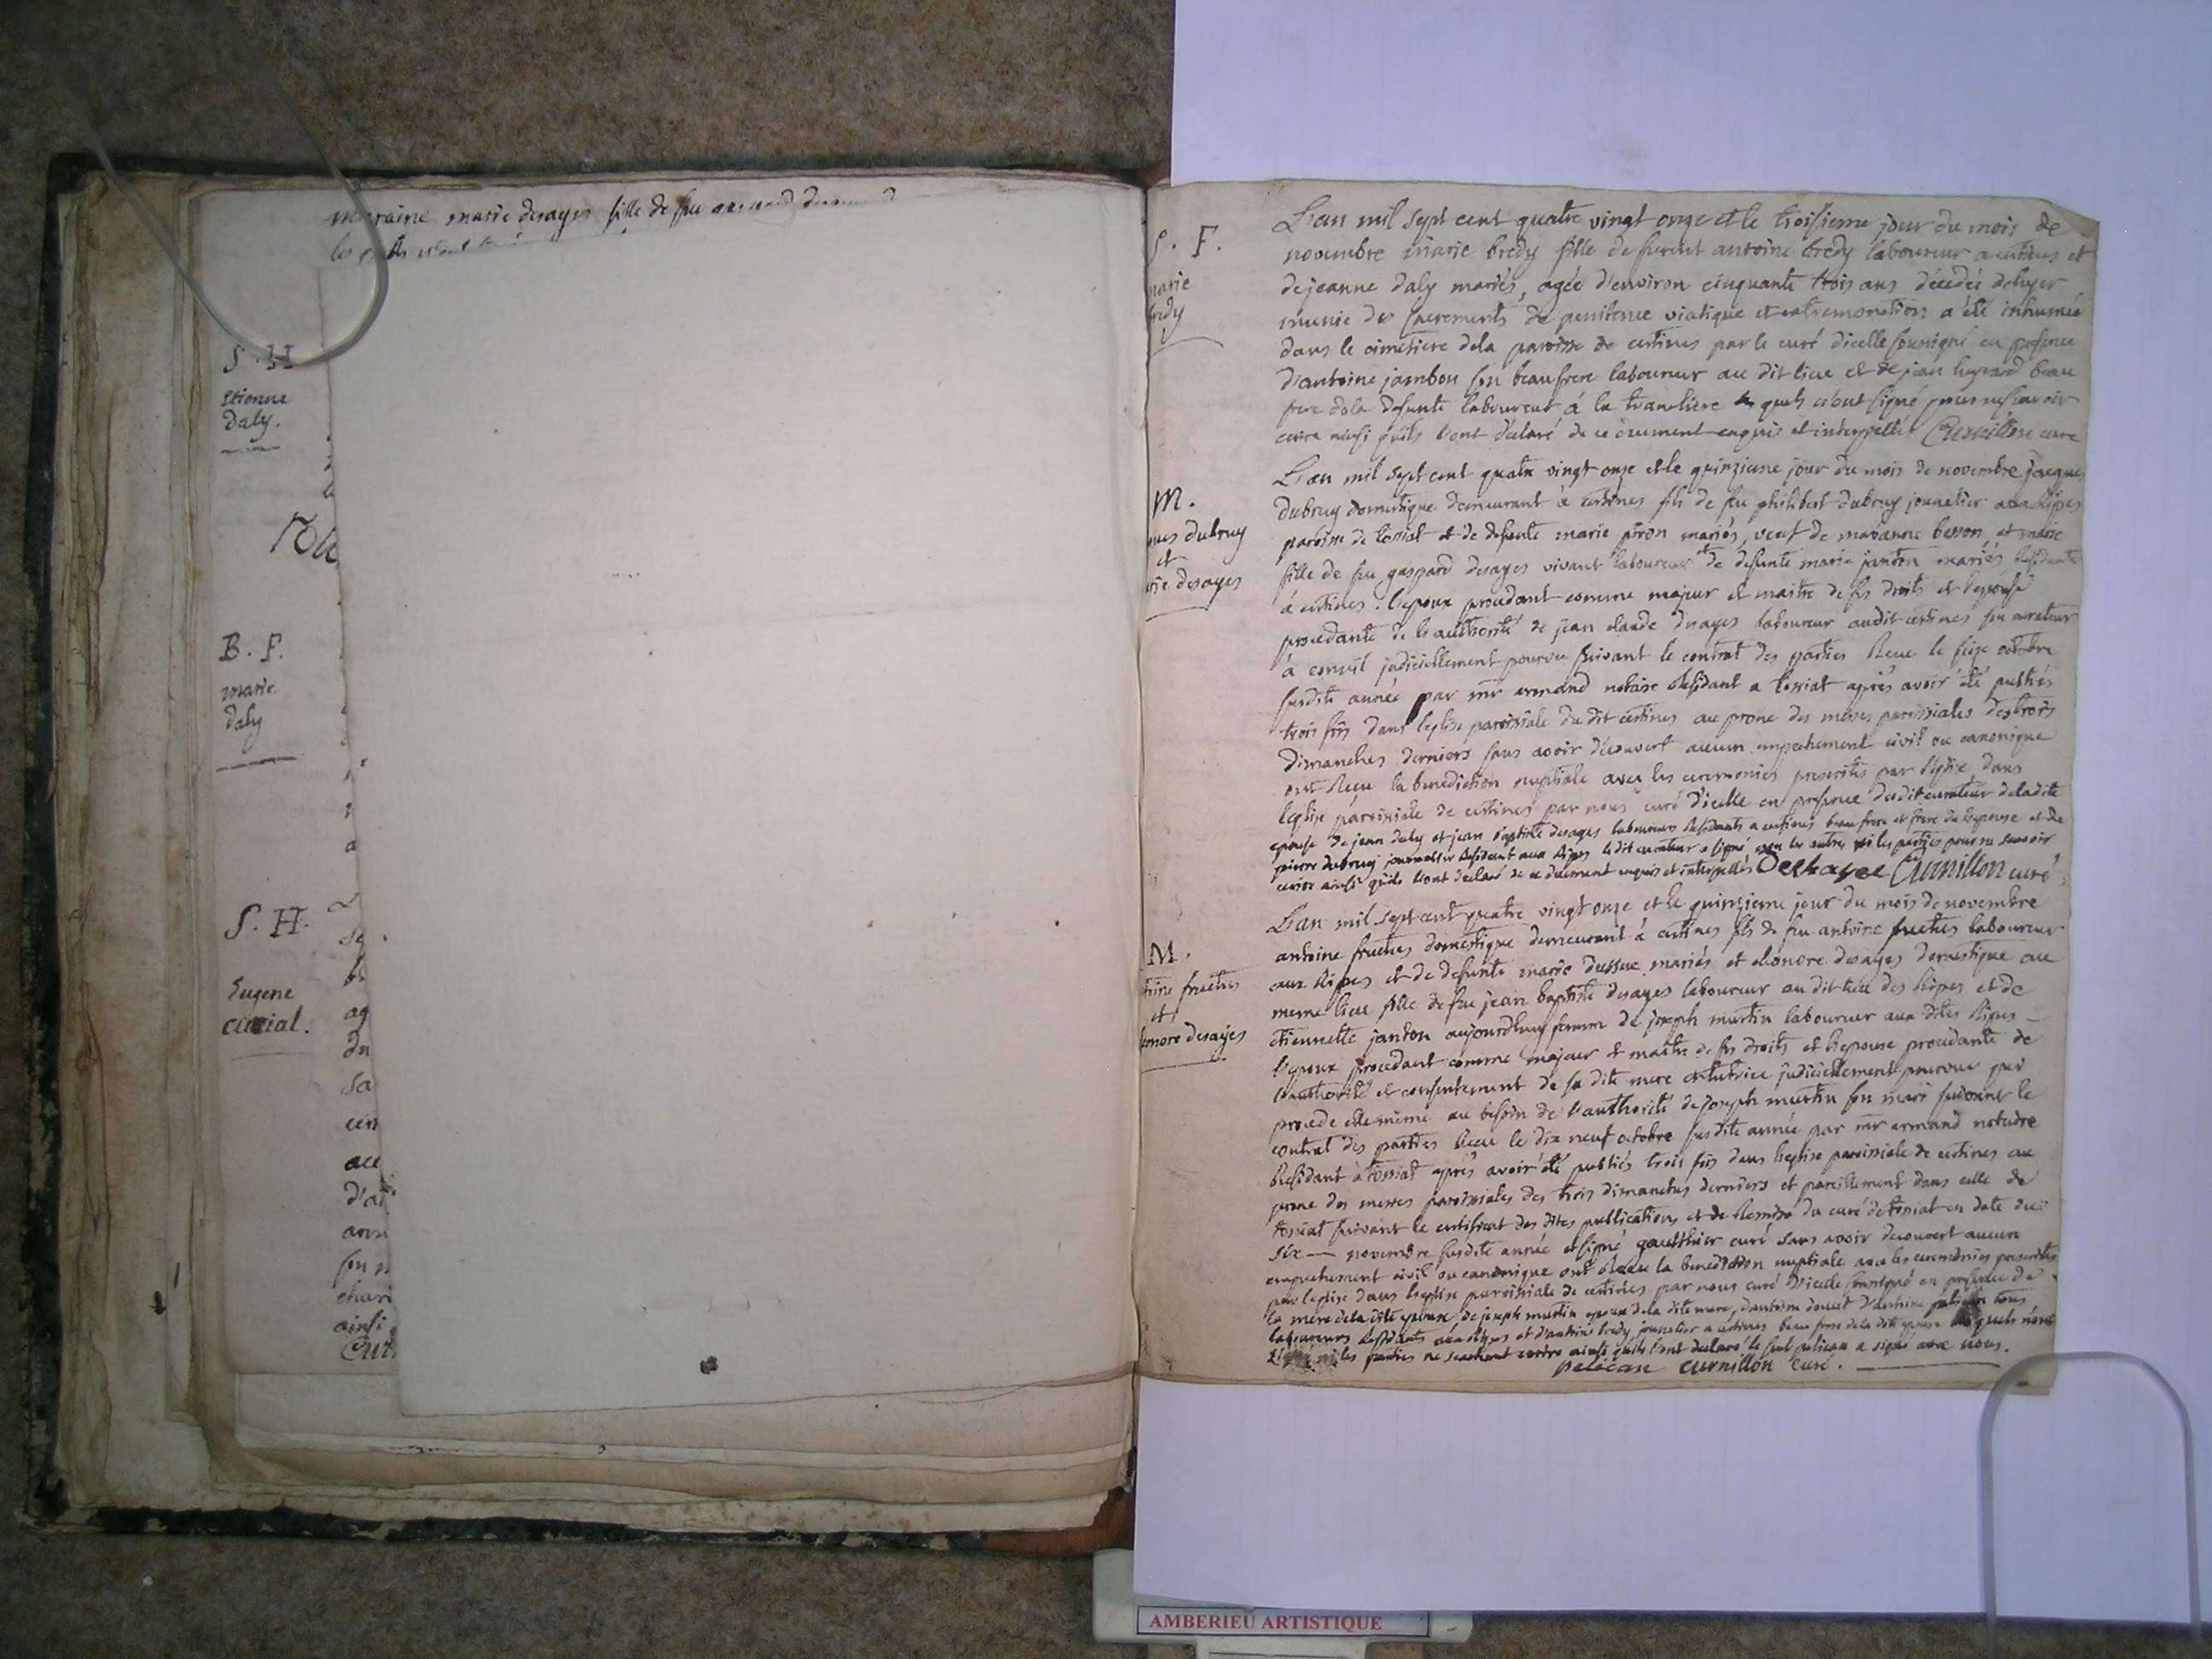 marraine marie desayes fille de feu
S. H
Etienne
daly.
B. F.
marie
daly
S. H.
Eugene
curial.
ag
du
sa
ceu
d'an
ainsi
S. F.
marie
bredy
L'an mil sept cent quatre vingt onze et le troisieme jour du mois de
novembre marie bredy fille de furent antoine bredy laboureur a certines et
de jeanne daly mariés, agée d'environ cinquante trois ans décédée
munie des sacrements de penitence viatique et extremonction a été inhumée
dans le cimetiere dela paroisse de certines par le curé d'icelle soussigné en presence
d'antoine jambon son beaufrere laboureur au dit lieu et de jean beau
frere dela defunte laboureur à la tranclière les quels n'ont signé pour ne sçavoir
ecrire ainsi qu'ils l'ont déclaré de ce duement enquis et interpellés Curnillon curé
M.
ques dubruy
et
rie desayes
L'an mil sept cent quatre vingt onze et le quinzieme jour du mois de novembre jacques
dubruy domestique demeurant à certines fils de feu philibert dubruy journalier aux Ripes
paroisse de tossiat et de defunte marie piron mariés, veuf de marianne besson, et marie
fille de feu gaspard desayes vivant laboureur et de defunte marie janton mariés Residante
à certines. l'epoux procedant comme majeur et maitre de ses droits et l'epouse
procedante de l'authorité de jean claude desayes laboureur audit certines son curateur
à conseil judiciellement pourvu suivant le contrat des parties Recu le seize octobre
susdite année par mr armand notaire Residant a tossiat après avoir été publiés
trois fois dans l'eglise paroissiale du dit certines au prone des messes paroissiales des trois
dimanches derniers sans avoir découvert aucun empechement civil ou canonique
ont Recu la benediction nuptiale avec les ceremonies prescrites par l'eglise dans
l'eglise paroissiale de certines par nous curé d'icelle en presence dudit curateur deladite
epouse de jean daly et jean baptiste desayes laboureurs Residants a certines beau frere et frere de l'epouse et de
pierre dubruy journalier Residant aux Ripes le dit curateur a signé non les autres ni les parties pour ne scavoir
ecrire ainsi qu'ils l'ont declaré de ce duement enquis et interpellés Deshayee Curnillon curé
M.
toine fructus
et
lonore desayes
L'an mil sept cent quatre vingt onze et le quinzieme jour du mois de novembre
antoine fructus domestique demeurant à certines fils de feu antoine fructus laboureur
aux Ripes et de defunte marie dussue mariés et elonore desayes domestique au
meme lieu fille de feu jean baptiste desayes laboureur au dit lieu des Ripes et de
etiennette janton aujourdhuy femme de joseph martin laboureur aux dites Ripes
l'epoux procedant comme majeur et maitre de ses droits et l'epouse procedante de
l'authorité et consentement de sa dite mere et tutrice judiciellement pourvue qui
procede elle meme au besoin de l'authorité de joseph martin son mari suivant le
contrat des parties Recu le dix neuf octobre susdite année par mr armand notaire
Residant à tossiat après avoir été publiés trois fois dans l'eglise paroissiale de certines au
prone des messes paroissiales des trois dimanches derniers et pareillement dans celle de
tossiat suivant le certificat des dites publications et de Remise du curé de tossiat en date du
six — novembre susdite année et signé gautthier curé sans avoir decouvert aucun
empechement civil ou canonique ont Recu la benediction nuptiale avec les ceremonies prescrites
par l'eglise dans l'eglise paroissiale de certines par nous curé d'icelle soussigné en presence de
la mere dela dite epouse, de joseph martin epoux dela dite mere, d'antoine d'antoine pelican tous
laboureurs Residants aux Ripes et d'antoine bredy journalier a certines beau frere dela dite epouse les quels n'ont
ni les parties ne scachant ecrire ainsi qu'ils l'ont declaré le seul pelican a signé avec nous.
pelecan curnillon curé.
AMBERIEU ARTISTIQUE